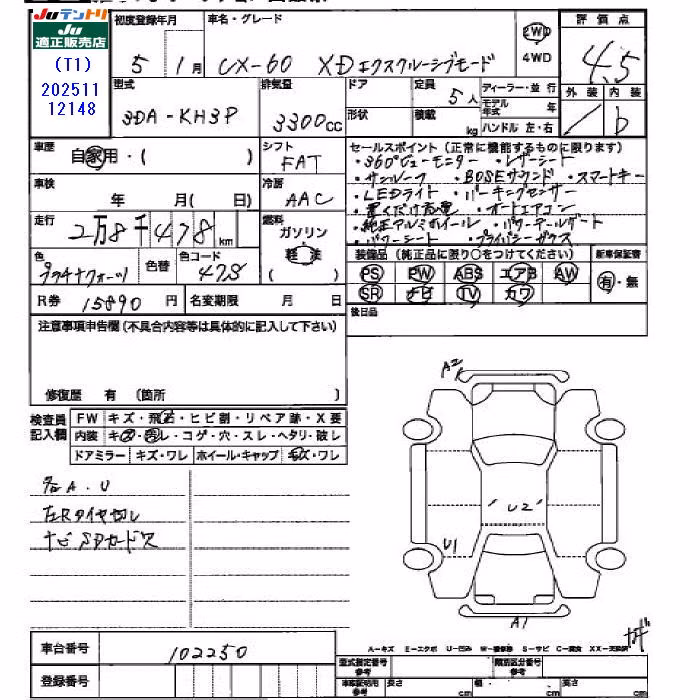 JUテントリ
JU
適正販売店
(T1)
202511
12148
初度登録年月
5年 1月
車名・グレード
CX-60 XD エクスクルーシブモード
2WD
4WD
評価点
4.5
外装 内装
b
型式
3DA-KH3P
排気量
3300cc
ドア
形状
定員
5人
積載
kg
ディーラー・並行
モデル年式 年
ハンドル 左・右
車歴
自家用・( )
シフト
FAT
セールスポイント(正常に機能するものに限ります)
・360°ビューモニター ・レザーシート
・サンルーフ ・BOSEサウンド ・スマートキー
・LEDライト ・パーキングセンサー
・置くだけ充電 ・オートエアコン
・純正アルミホイール ・パワーテールゲート
・パワーシート ・プライバシーガラス
車検
年 月( 日)
冷房
AAC
走行
2万8千478km
燃料
ガソリン
軽油
( )
色
プラチナクォーツ
色替
色コード
47S
装備品 (純正品に限り○をつけてください)
新車保証書
PS PW ABS エアB AW
SR ナビ TV カワ
有・無
R券 15890円
名変期限 月 日
後日品
注意事項申告欄(不具合内容等は具体的に記入して下さい)
修復歴 有 (箇所 )
検査員
記入欄
FW キズ・飛石・ヒビ割・リペア跡・X要
内装 キズ・汚レ・コゲ・穴・スレ・ヘタリ・破レ
ドアミラー キズ・ワレ ホイール・キャップ キズ・ワレ
各A.U
左Rタイヤ切レ
ナビSDカード欠
A2
U2
U1
A1
車台番号 102250
登録番号
A-キズ E-エクボ U-凹ミ W-補修跡 S-サビ C-腐食 XX-交換済
型式指定番号
参考
類別区分番号
参考
車庫証明用
参考
長さ cm 幅 cm 高さ cm